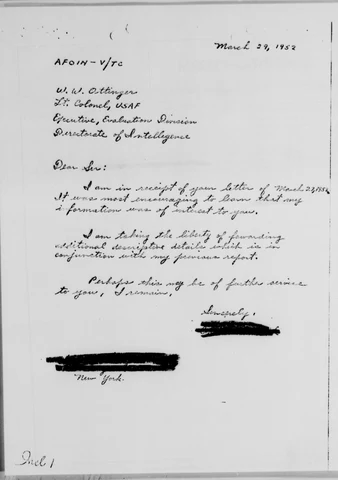 March 29, 1952
AFOIN-V/TC
W. W. Ottinger
Lt. Colonel, USAF
Executive, Evaluation Division
Directorate of Intellegence
Dear Sir:
I am in receipt of your letter of March 27, 1952.
It was most encouraging to learn that my
i formation was of interest to you.
I am taking the liberty of fowarding
additional descriptive details which is in
conjunction with my previous report.
Perhaps this may be of further service
to you, I remain,
Sincerely,
New York.
Incl 1